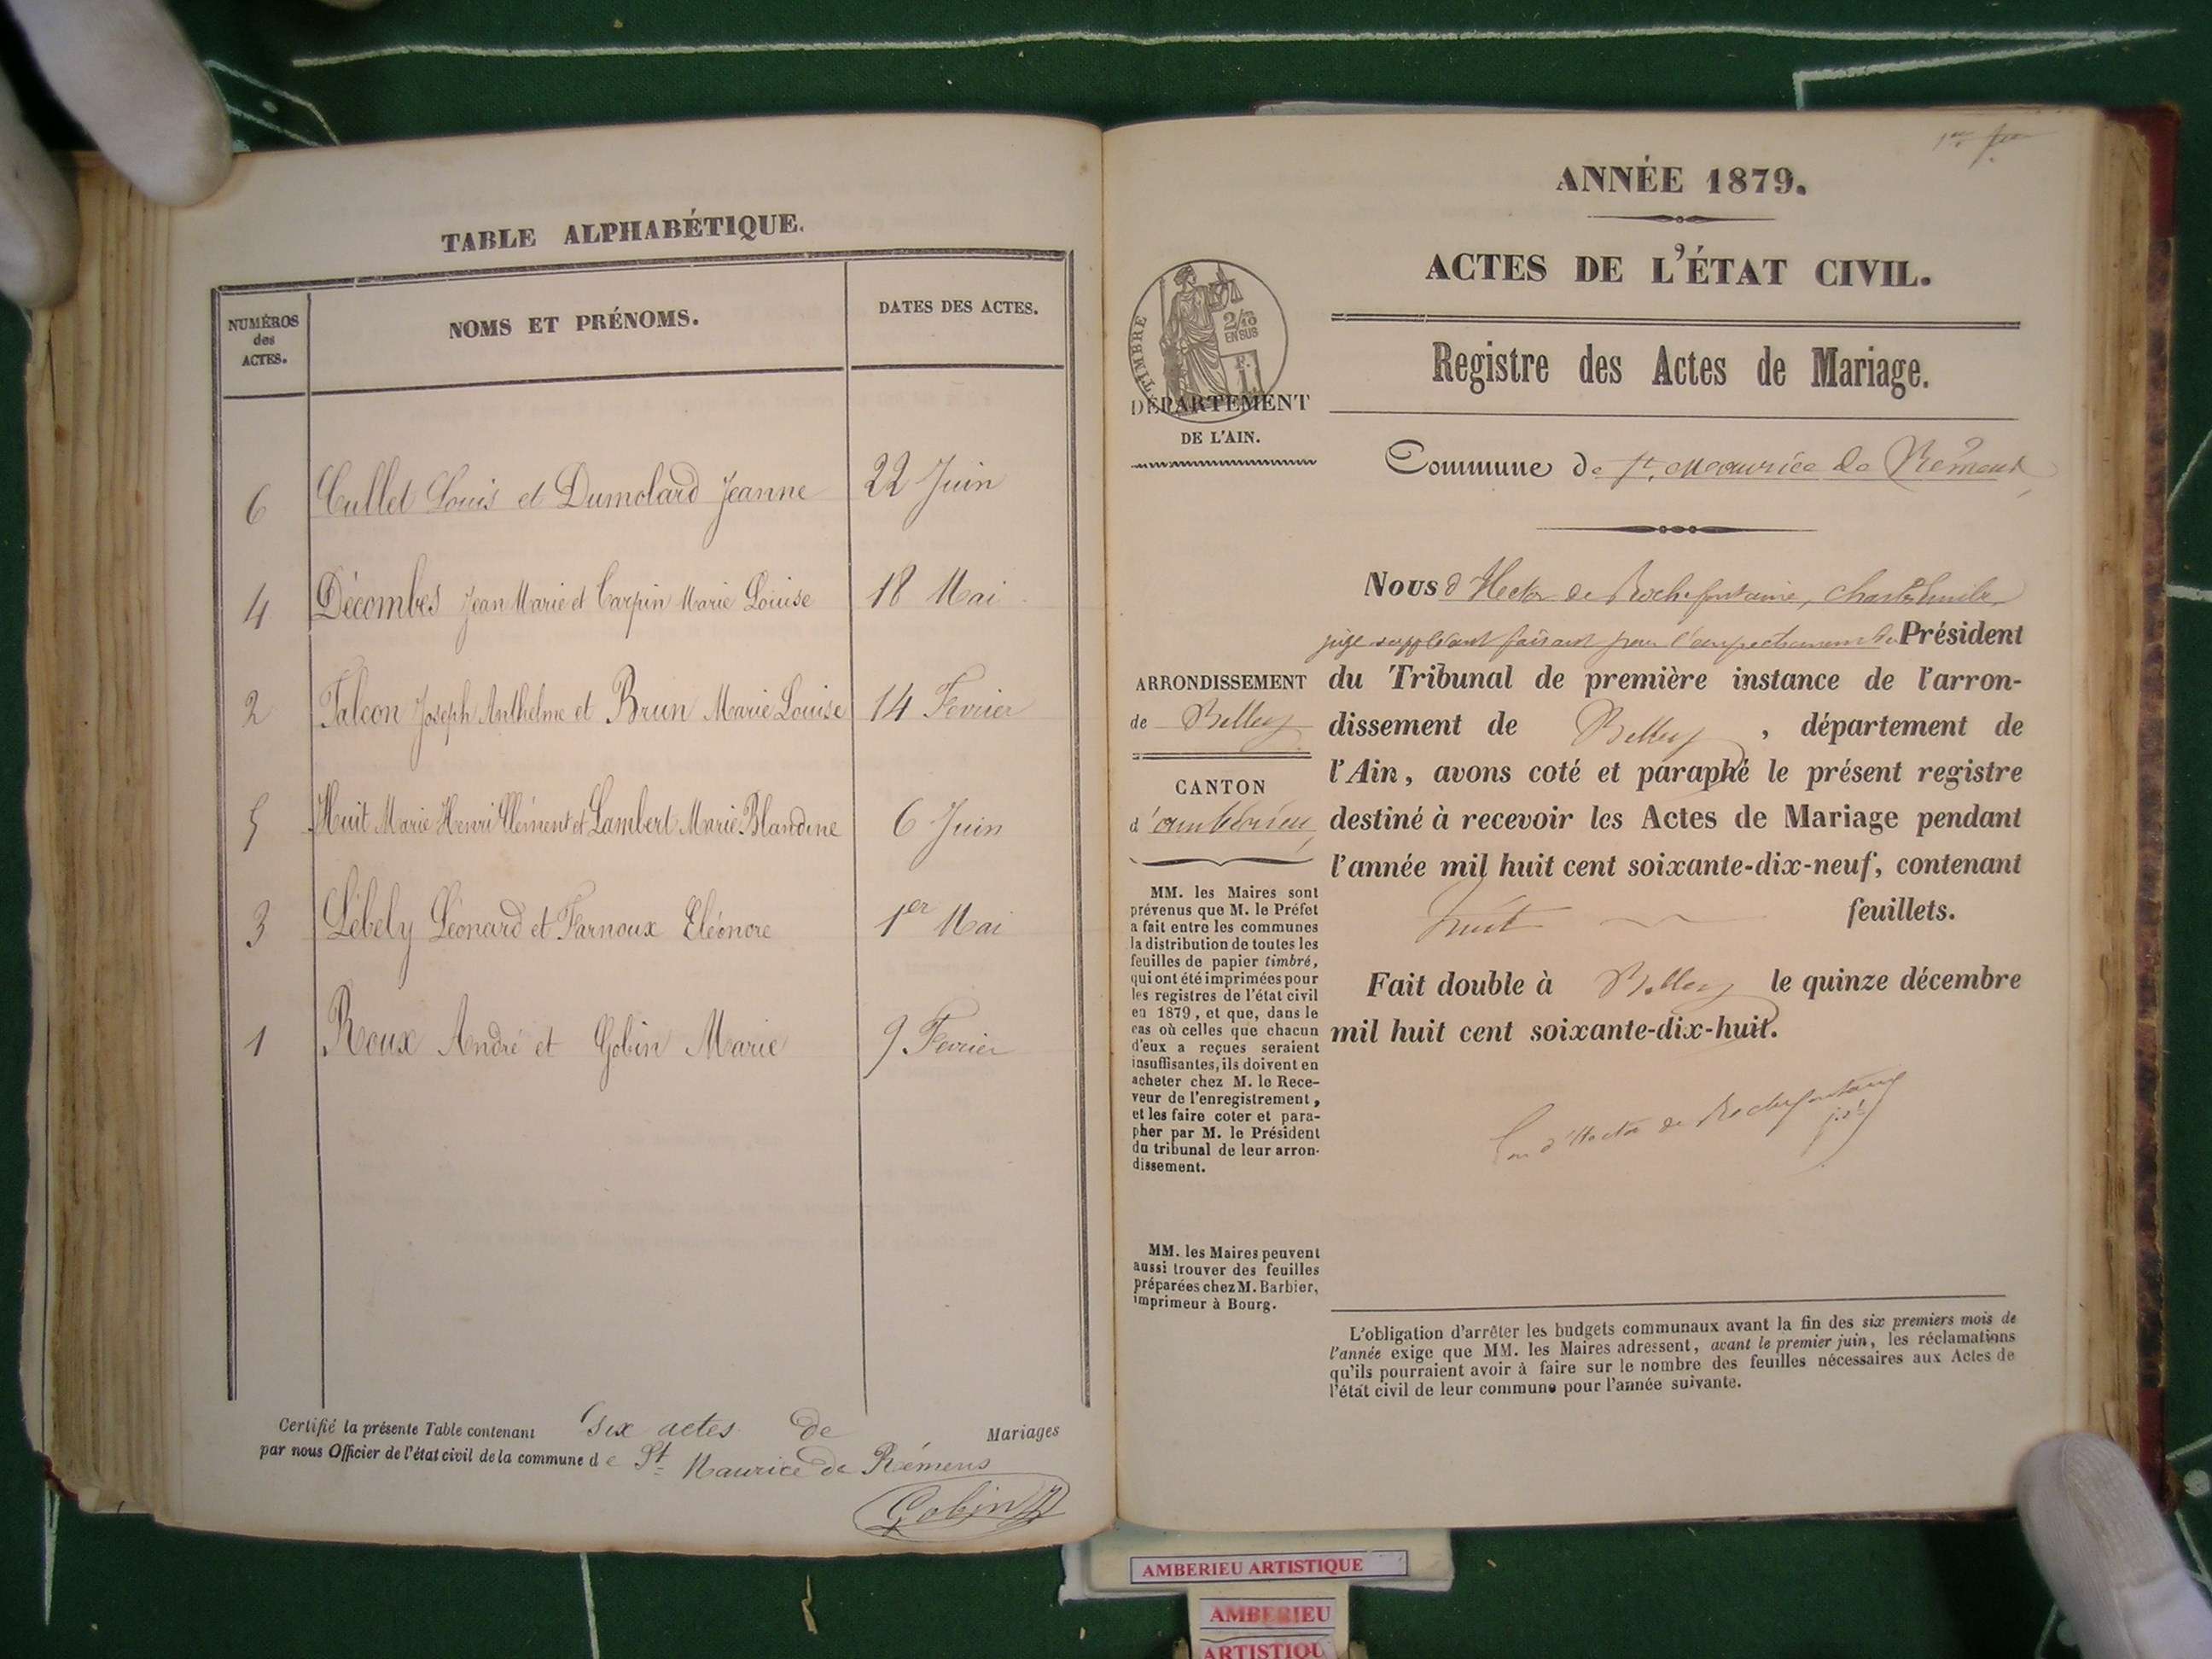 TABLE ALPHABÉTIQUE.
NUMÉROS
des
ACTES.
NOMS ET PRÉNOMS.
DATES DES ACTES.
6 Cullet Louis et Dumolard Jeanne 22 Juin
4 Décombes Jean Marie et Carpin Marie Louise 18 Mai
2 Falcon Joseph Anthelme et Brun Marie Louise 14 Fevrier
5 Huit Marie Henri Clément et Lambert Marie Blandine 6 Juin
3 Lébely Léonard et Farnoux Eléonore 1er Mai
1 Roux André et Gobin Marie 9 Fevrier
Certifié la présente Table contenant Six actes de Mariages
par nous Officier de l'état civil de la commune de St Maurice de Rémens
Gobin
ANNÉE 1879.
ACTES DE L'ÉTAT CIVIL.
Registre des Actes de Mariage.
TIMBRE
2/10
EN SUS
DÉPARTEMENT
DE L'AIN.
Commune de St. Maurice de Rémens
ARRONDISSEMENT
de Belley
CANTON
d'ambérieu
MM. les Maires sont
prévenus que M. le Préfet
a fait entre les communes
la distribution de toutes les
feuilles de papier timbré,
qui ont été imprimées pour
les registres de l'état civil
en 1879, et que, dans le
cas où celles que chacun
d'eux a reçues seraient
insuffisantes, ils doivent en
acheter chez M. le Rece-
veur de l'enregistrement,
et les faire coter et para-
pher par M. le Président
du tribunal de leur arron-
dissement.
MM. les Maires peuvent
aussi trouver des feuilles
préparées chez M. Barbier,
imprimeur à Bourg.
Nous d'Hector de Rochefontaine, Charles Emile,
juge suppléant faisant pour l'empêchement du Président
du Tribunal de première instance de l'arron-
dissement de Belley, département de
l'Ain, avons coté et paraphé le présent registre
destiné à recevoir les Actes de Mariage pendant
l'année mil huit cent soixante-dix-neuf, contenant
huit feuillets.
Fait double à Belley le quinze décembre
mil huit cent soixante-dix-huit.
d'Hector de Rochefontaine
L'obligation d'arrêter les budgets communaux avant la fin des six premiers mois de
l'année exige que MM. les Maires adressent, avant le premier juin, les réclamations
qu'ils pourraient avoir à faire sur le nombre des feuilles nécessaires aux Actes de
l'état civil de leur commune pour l'année suivante.
AMBERIEU ARTISTIQUE
AMBERIEU
ARTISTIQU